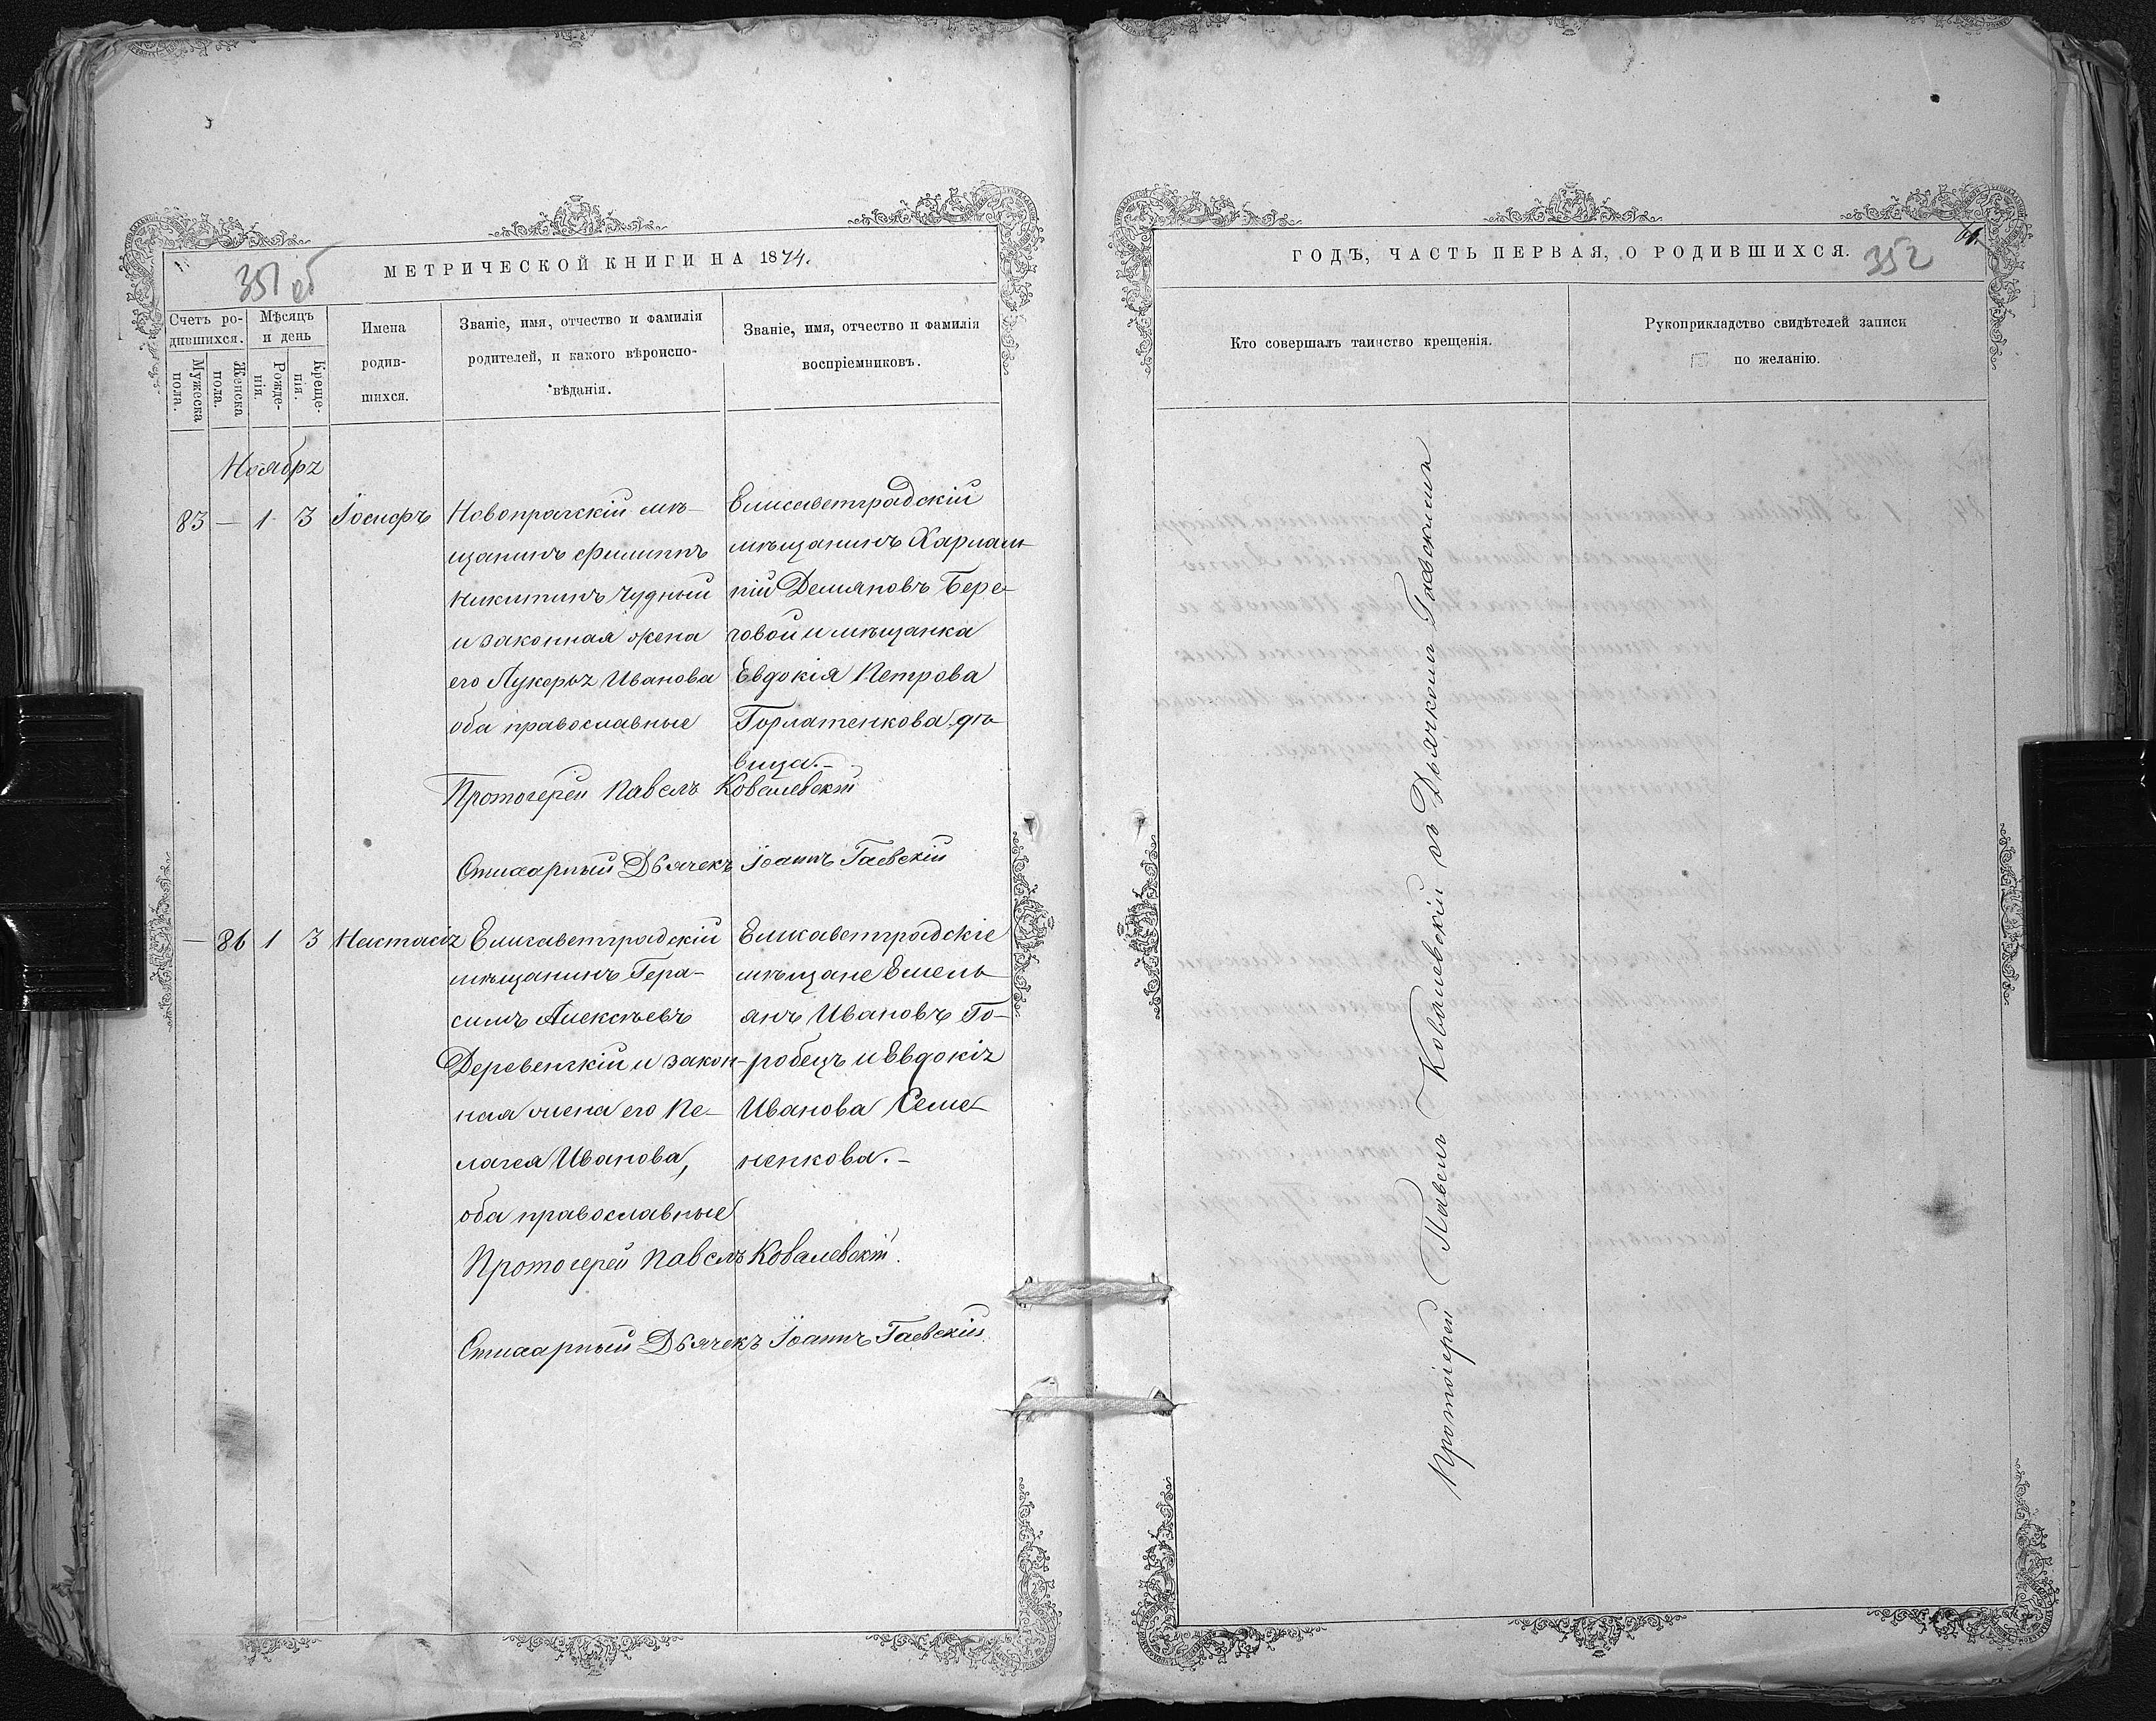 351 об
МЕТРИЧЕСКОЙ КНИГИ НА 1874.
Счетъ ро-
дившихся.
Мѣсяцъ
и день
Мужеска
пола.
Женска
пола.
Рожде-
нія.
Креще-
нія.
Имена
родив-
шихся.
Званіе, имя, отчество и фамилія
родителей, и какого вѣроиспо-
вѣданія.
Званіе, имя, отчество и фамилія
воспріемниковъ.
Ноябрь
83 — 1 3 Іосифъ
Новопражскій мѣ-
щанинъ Филиппъ
Никитинъ Чудный
и законная жена
его Лукерья Иванова
оба православные
Елисаветградскій
мѣщанинъ Харлам-
пій Демяновъ Бере-
говой и мѣщанка
Евдокія Петрова
Горлатенкова дѣ-
вица.—
Протоіерей Павелъ Ковалевскій
Стихарный Дьячекъ Іоаннъ Гаевскій
— 86 1 3 Настасія
Елисаветградскій
мѣщанинъ Гера-
симъ Алексѣевъ
Деревенскій и закон-
ная жена его Пе-
лагея Иванова,
оба православные
Елисаветградскіе
мѣщане Емель
янъ Ивановъ Го-
робецъ и Евдокія
Иванова Семе-
ненкова.—
Протоіерей Павелъ Ковалевскій.
Стихарный Дьячекъ Іоаннъ Гаевскій
ГОДЪ, ЧАСТЬ ПЕРВАЯ, О РОДИВШИХСЯ.
352
Кто совершалъ таинство крещенія.
Рукоприкладство свидѣтелей записи
по желанію.
Протоіерей Павелъ Ковалевскій съ Дьячкомъ Гаевскимъ